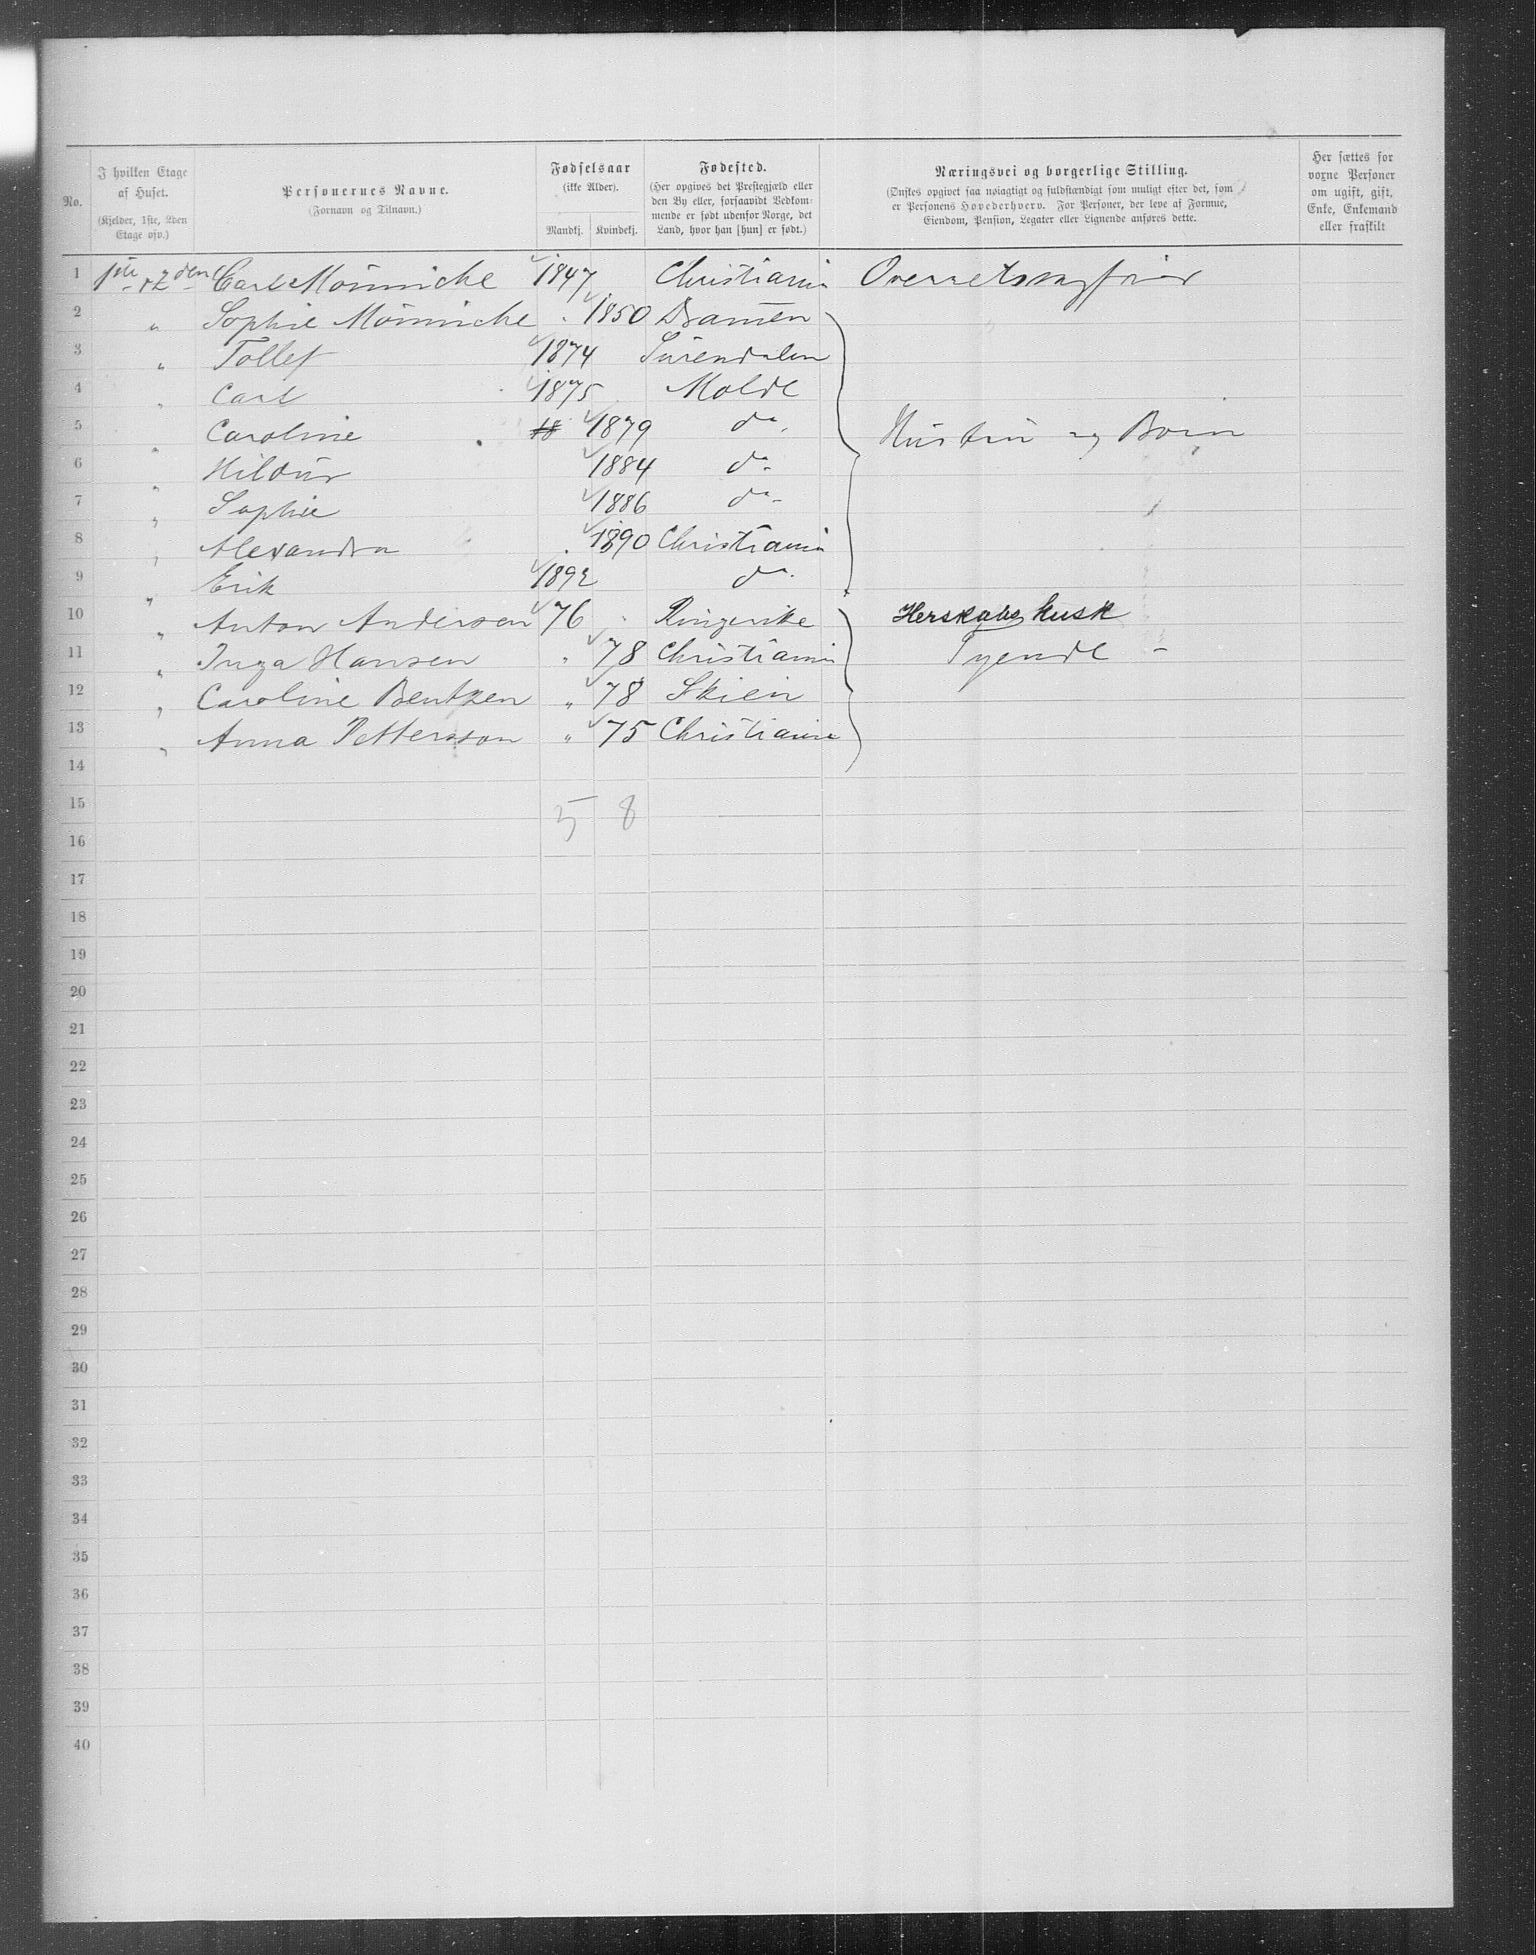 No.
I hvilken Etage af Huset.
(Kjelder, 1ste, 2den Etage osv.)
Personernes Navne.
(Fornavn og Tilnavn.)
Fødselsaar
(ikke Alder).
Mandkj. Kvindekj.
Fødested.
(Her opgives det Prestegjæld eller den By eller, forsaavidt Vedkom-
mende er født udenfor Norge, det Land, hvor han [hun] er født.)
Næringsvei og borgerlige Stilling.
(Ønskes opgivet saa nøiagtigt og fuldstændigt som muligt efter det, som
er Personens Hovederhverv. For Personer, der leve af Formue,
Eiendom, Pension, Legater eller Lignende anføres dette.
Her sættes for
voxne Personer
om ugift, gift,
Enke, Enkemand
eller fraskilt
1 1ste & 2den Carl Mönniche 1847 Christiania Overretssagfører
2 " Sophie Mönniche " 1850 Dramen
3 " Tollef 1874 Surendalen
4 " Carl 1875 Molde
5 " Caroline 18 1879 do. Hustru og Börn
6 " Hildur 1884 do
7 " Sophie 1886 do
8 " Alexandra 1890 Christiania
9 " Erik 1892 do.
10 " Anton Andersen 76 " Ringerike Herskabs kusk
11 " Inga Hansen " 78 Christiania Tyende
12 " Caroline Bentzen " 78 Skien
13 " Anna Pettersson " 75 Christiania
14
15 5 8
16
17
18
19
20
21
22
23
24
25
26
27
28
29
30
31
32
33
34
35
36
37
38
39
40